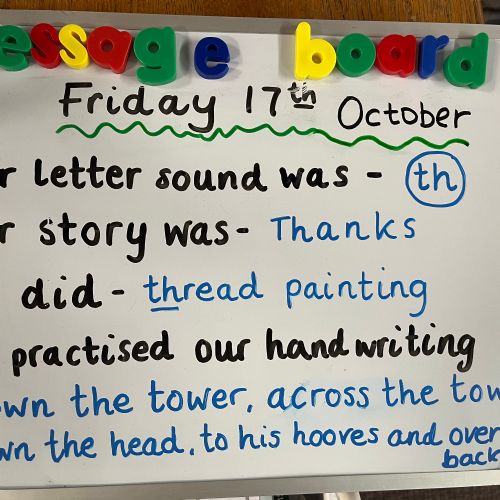 essage board
Friday 17th October
r letter sound was - th
r story was - Thanks
did - thread painting
practised our handwriting
own the tower, across the tow
wn the head, to his hooves and over
back